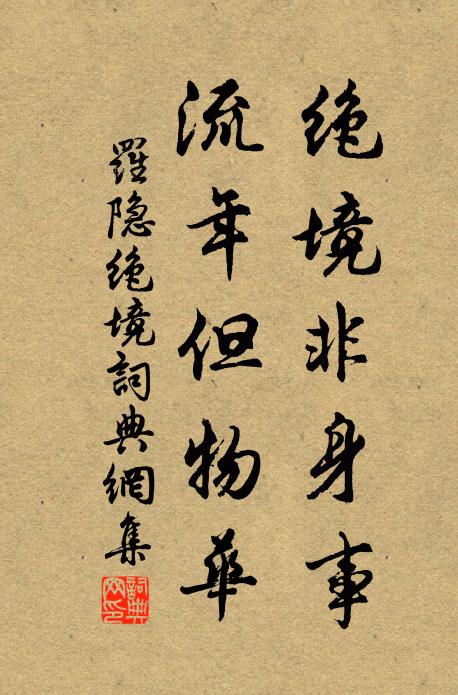 绝境非身事
流年但物華
羅隐绝境詞典網集
詞典网印